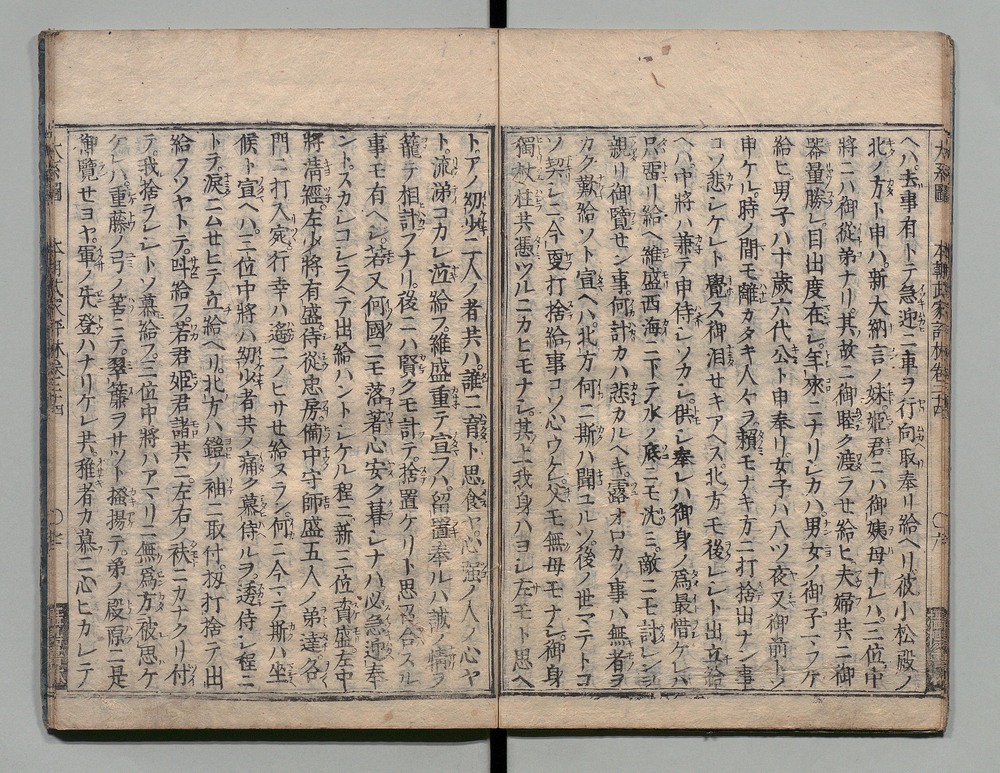 大系圖 本朝武家評林卷三十四 ○六
ヘハ去事有トテ急迎ニ車ヲ行向取奉リ給ヘリ彼小松殿ノ
北ノ方ト申ハ新大納言ノ妹姫君ニハ御姨母ナレハ三位中
將ニハ御從弟ナリ其故ニ御睦ク渡ラせ給ヒ夫婦共ニ御
器量勝レ目出度在シ年來ニナリシカハ男女ノ御子二マフケ
給ヒ男子ハ十歳六代公ト申奉リ女子ハ八ツ夜叉御前トソ
申ケル時ノ間モ離カタキ人々ヲ頼モナキ方ニ打捨出ナン事
コソ悲シケレト覺ス御泪せキアヘス北方モ後レシト出立給
ヘハ中將ハ兼テ申侍シソカシ供シ奉レハ御身ノ爲最惜ケレハ
只畱リ給ヘ維盛西海ニ下テ水ノ底ニモ沈ミ敵ニモ討レンヲ
親リ御覽せン事何計カハ悲カルヘキ露オロカノ事ハ無者ヲ
カク歎給ソト宣ヘハ北方何ニ斯ハ聞ユルソ後ノ世マテトコ
ソ契シニ今更打捨給事コソ心ウケレ父モ無母モナシ御身
獨杖柱共憑ツルニカヒモナシ其上我身ハヨシ左モト思ヘ
トアノ幼少二人ノ者共ハ誰ニ育ト思食ヤ心強ノ人ノ心ヤ
ト流涕コカレ泣給フ維盛重テ宣フハ留置奉ルハ誠ノ情ヲ
籠テ相計フナリ後ニハ賢クモ計テ捨置ケリト思召合スル
事モ有ヘシ若又何國ニモ落著心安ク暮シナハ必急迎奉
ントスカシコシラヘテ出給ハントシケル程ニ新三位資盛左中
將清經左少將有盛侍從忠房備中守師盛五人ノ弟達各
門ニ打入宛行幸ハ遙ニノヒサせ給スラン何ニ今マテ斯ハ坐
候ト宣ヘハ三位中將ハ幼少者共ノ痛ク慕侍ルヲ透侍シ程ニ
トテ涙ニムせヒテ立給ヘリ北方ハ鎧ノ袖ニ取付扨打捨テ出
給フソヤトテ叫給フ若君姫君諸共ニ左右ノ袂ニカナクリ付
テ我捨ラレシトソ慕給フ三位中將ハアマリニ無爲方彼思ケ
レハ重藤ノ弓ノ筈ニテ翠簾ヲサツト搔揚テ弟ノ殿原ニ是
御覽せヨヤ軍ノ先登ハナリケレ共稚者カ慕ニ心ヒカレテ
大系圖 本朝武家評林卷三十四